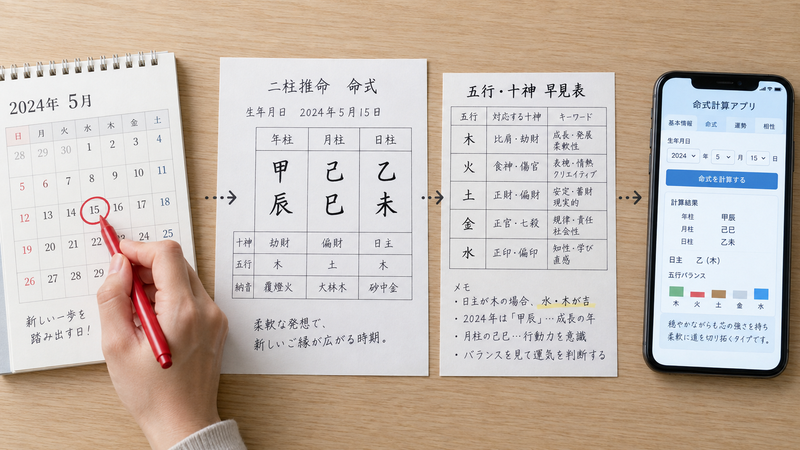 2024年 5月
日 月 火 水 木 金 土
28 29 30 1 2 3 4
5 6 7 8 9 10 11
12 13 14 15 16 17 18
19 20 21 22 23 24 25
26 27 28 29
新しい一歩を
踏み出す日!
二柱推命 命式
生年月日 2024年5月15日
年柱 月柱 日柱
甲 己 乙
辰 巳 未
十神 劫財 偏財 日主
五行 木 土 木
納音 覆燈火 大林木 砂中金
柔軟な発想で、
新しいご縁が広がる時期。
五行・十神 早見表
五行 対応する十神 キーワード
木 比肩・劫財 成長・発展
柔軟性
火 食神・傷官 表現・情熱
クリエイティブ
土 正財・偏財 安定・蓄財
現実的
金 正官・七殺 規律・責任
社会性
水 正印・偏印 知性・学び
直感
メモ
・日主が木の場合、水・木が吉
・2024年は「甲辰」…成長の年
・月柱の己巳…行動力を意識
・バランスを見て運気を判断する
命式計算アプリ
基本情報 命式 運勢 相性
生年月日
2024 年 5 月 15 日
命式を計算する
計算結果
年柱 甲辰
月柱 己巳
日柱 乙未
日主 乙(木)
五行バランス
木 火 土 金 水
穏やかながらも芯の強さを持ち
柔軟に道を切り拓くタイプです。